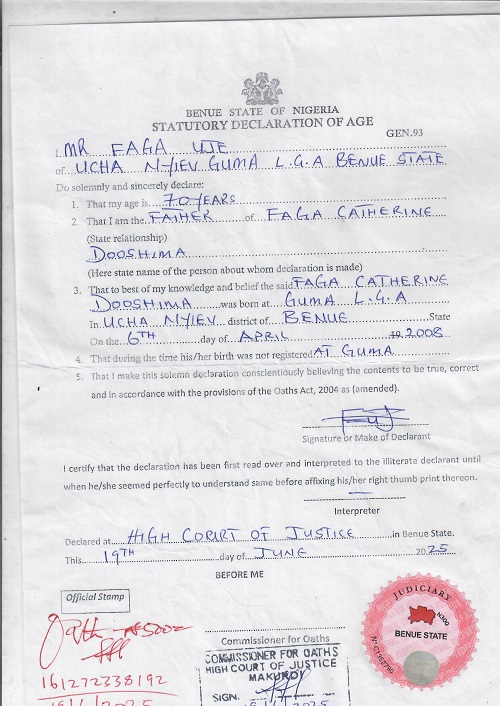 BENUE STATE OF NIGERIA
STATUTORY DECLARATION OF AGE
GEN.93
1. MR FAGA UJE
of UCHA N-YIEV GUMA L.G.A BENUE STATE
Do solemnly and sincerely declare:
1. That my age is 70 YEARS
2. That I am the FATHER of FAGA CATHERINE
(State relationship)
DOOSHIMA
(Here state name of the person about whom declaration is made)
3. That to best of my knowledge and belief the said FAGA CATHERINE
DOOSHIMA was born at GUMA L.G.A
In UCHA N-YIEV district of BENUE State
On the 6TH day of APRIL 19 2008
4. That during the time his/her birth was not registered AT GUMA
5. That I make this solemn declaration conscientiously believing the contents to be true, correct
and in accordance with the provisions of the Oaths Act, 2004 as (amended).
Signature or Make of Declarant
I certify that the declaration has been first read over and interpreted to the illiterate declarant until
when he/she seemed perfectly to understand same before affixing his/her right thumb print thereon.
Interpreter
Declared at HIGH COURT OF JUSTICE in Benue State.
This 19TH day of JUNE 2025
BEFORE ME
Official Stamp
Oath
161272338192
Commissioner for Oaths
COMMISSIONER FOR OATHS
HIGH COURT OF JUSTICE
MAKURDI
SIGN.
JUDICIARY
N300
BENUE STATE